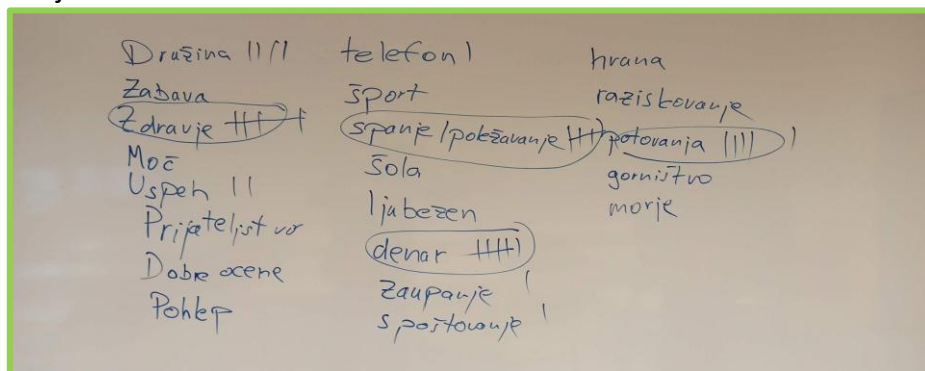 Družina ||||
Zabava
Zdravje |||| |
Moč
Uspeh ||
Prijateljstvo
Dobre ocene
Pohlep
telefon |
šport
spanje/poležavanje ||||
šola
ljubezen
denar |||||
Zaupanje |
spoštovanje |
hrana
raziskovanje
potovanja |||| |
gorništvo
morje